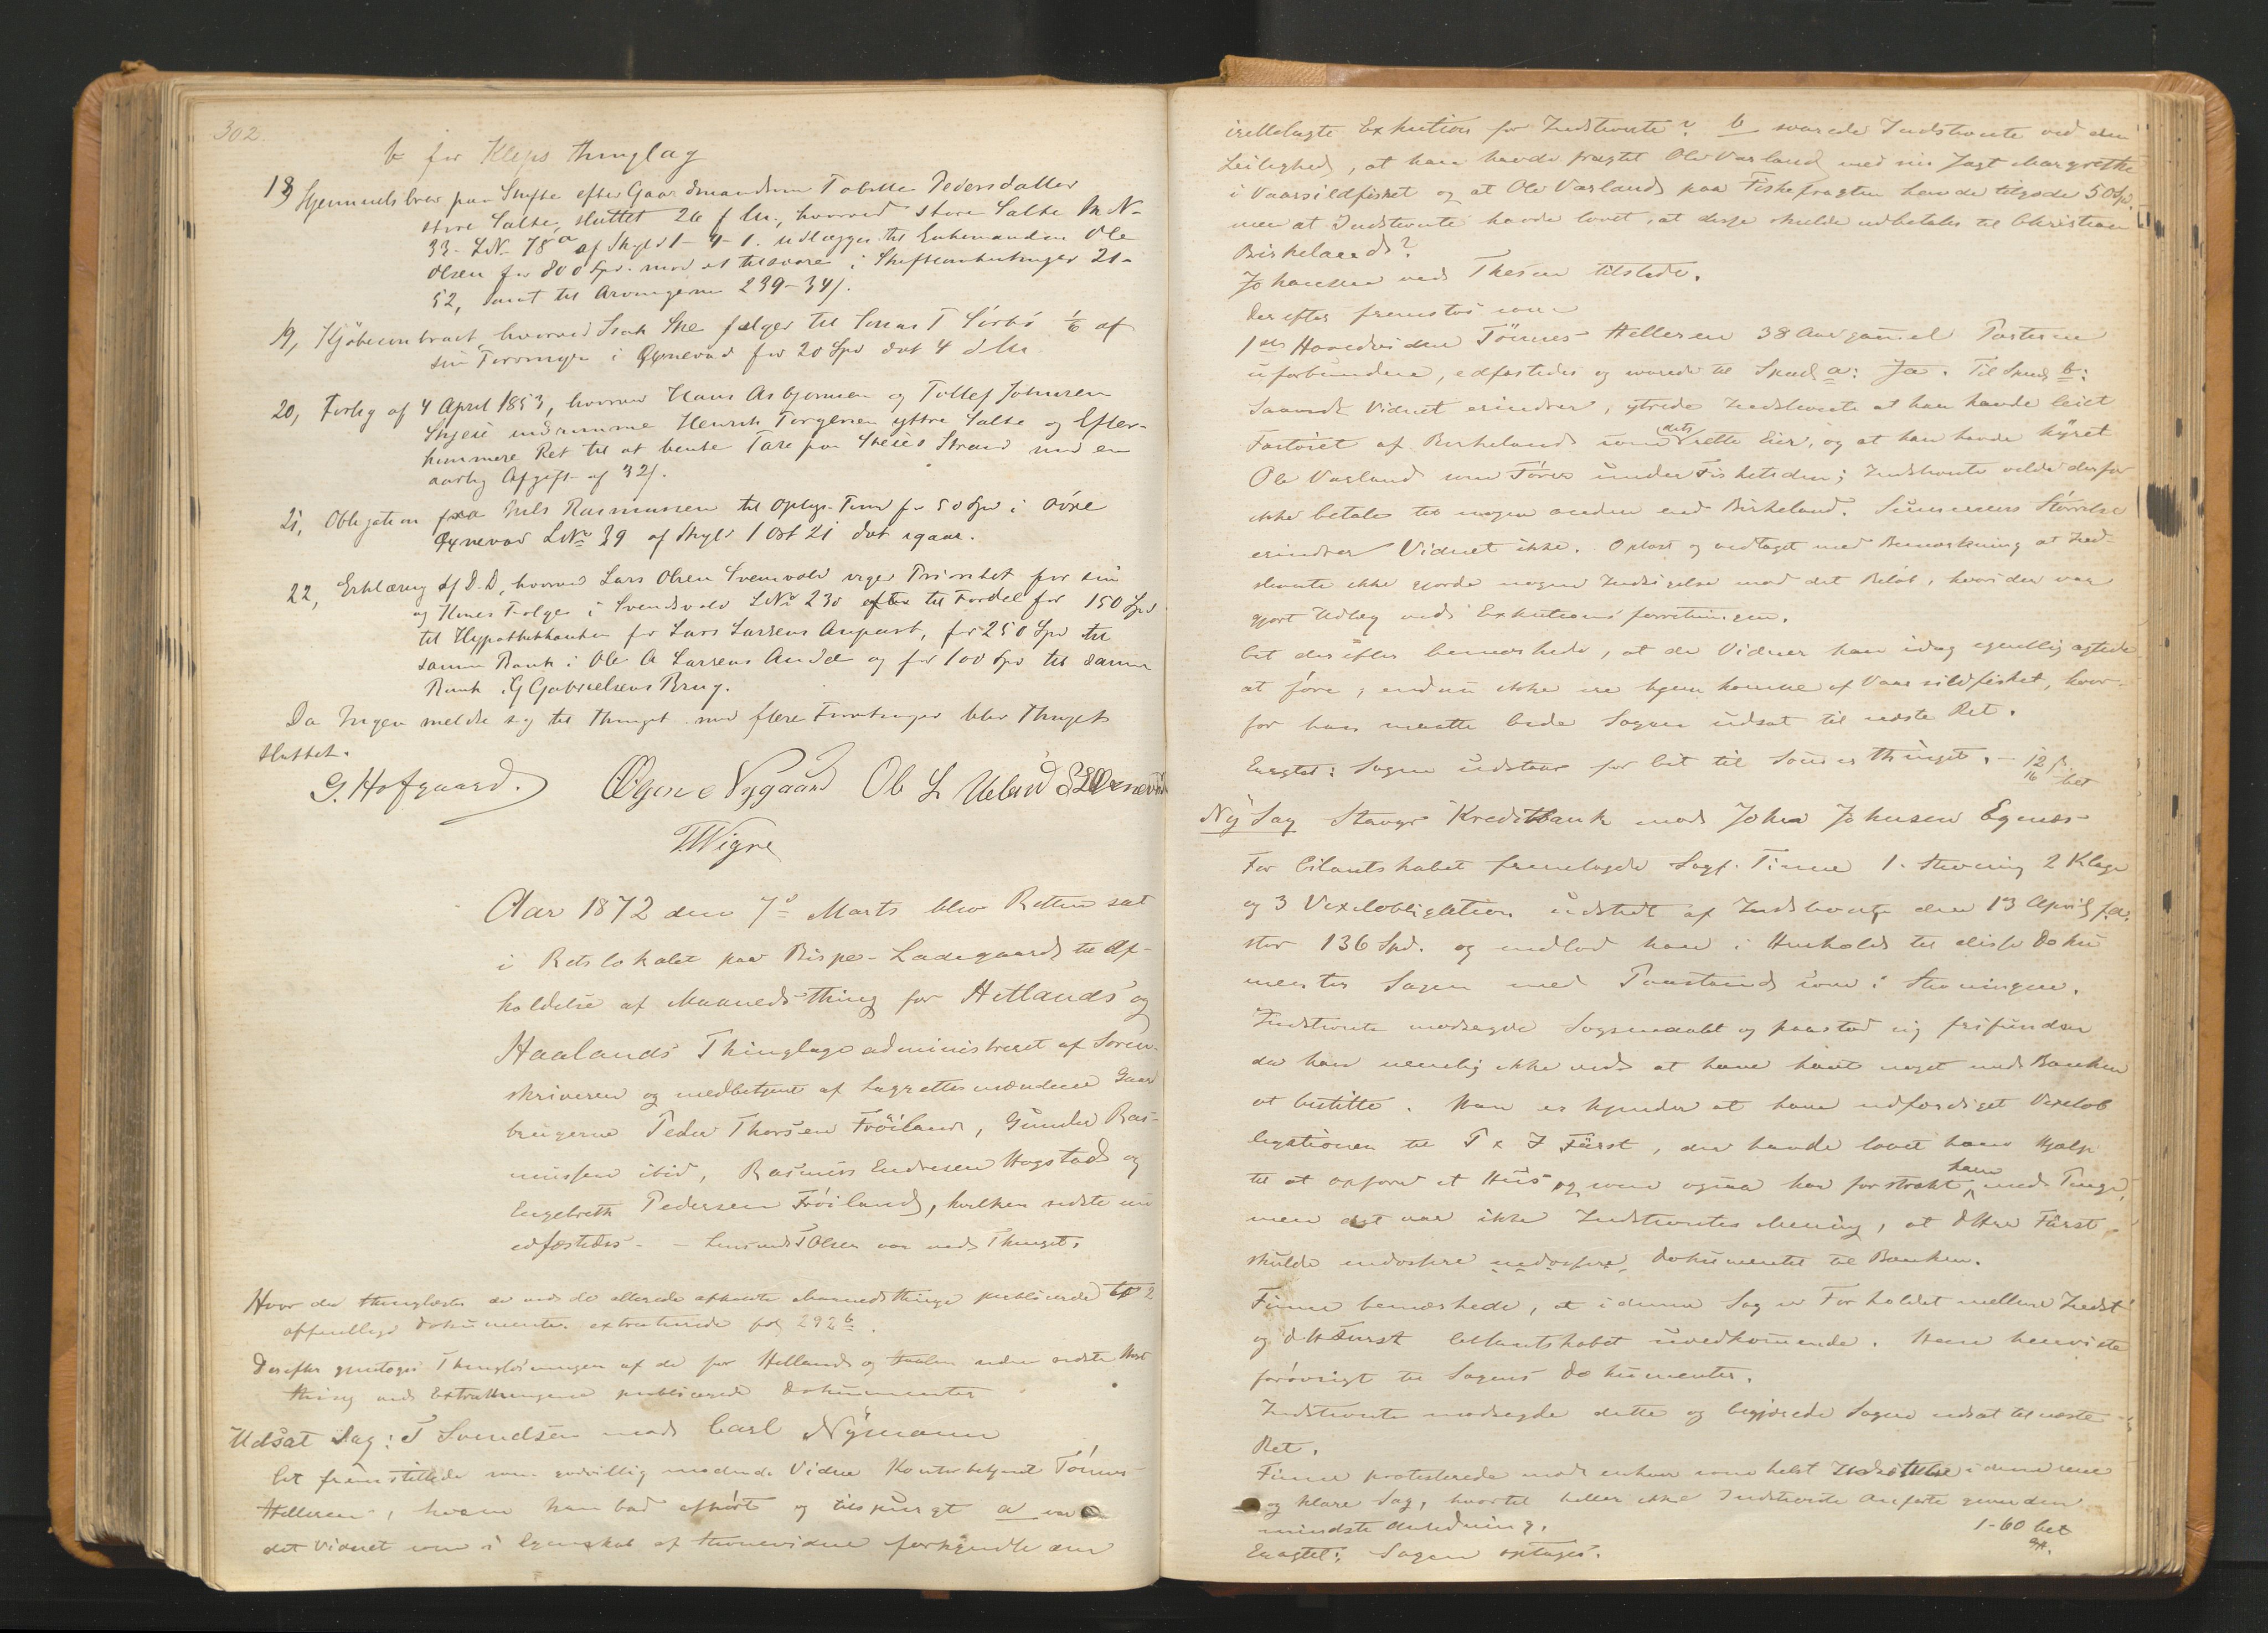 302.
b for Kleps thinglag
18) Hjemmelsbrev paa Skifte efter Gaardmandsen Tobitha Pedersdatter
store Salte, sluttet 26 f. M., hvorved store Salte M N-
33- L.N- 78a af Skyld 1-4-1. udlægges til Enkemanden Ole
Olsen for 800 Spd. mod at tilsvare i Skifteomkostninger 21-
52, samt til Arvingerne 239-34/.
19, Kjøbecontract, hvorved Isak Ske sælger til Jonas T Sørbø 1/6 af
sin Torvmyr i Øxnevad for 20 Spd dat 4 d M.
20, Forlig af 4 April 1853, hvorved Hans Asbjørnsen og Tollef Johnsen
Skjeie indrømme Henrik Torgersen yttre Salte og Efter-
kommere Ret til at hente Tare paa Skeies Strand mod en
aarlig Afgift af 32/.
21, Obligation fra Niels Rasmussen til Oplys. Fond for 50 Spd i øvre
Øxnevad LNo 39 af Skyld 1 Ort 21 dat igaar.
22, Erklæring af D.D, hvorved Lars Olsen Svensvold viger Prioritet for sin
og Kones Folge i Svendsvold LNo 230 efter til Fordel for 150 Spd
til Hypothekbanken for Lars Larsens Anpart, for 250 Spd til
samme Bank i Ole A Larsens Andel og for 100 Spd til samme
Bank i G Gabrielsens Brug.
Da Ingen meldte sig til Thinget med flere Forretninger blev Thinget
sluttet.
G. Hofgaard. Ogne Nygaard Ole L Ueland S Oxnevad
T Wigre
Aar 1872 den 7de Marts blev Retten sat
i Retslokalet paa Bispe-Ladegaard til Af-
holdelse af Maanedsthing for Hetlands og
Haalands Thinglage administreret af Soren-
skriveren og medbetjent af Lagrettesmændene Gaard
brugerne Peder Thorsen Frøiland, Gunder Ras-
mussen ibid, Rasmus Endresen Hogstad og
Engebreth Pedersen Fröiland, hvilken sidste nu
edfæstedes. - Lensmd T Olsen var ved Thinget.
Hvor da thinglæstes de ved de allerede afholdte Maanedsthinge publicerede
offentlige Dokumenter extraherede fol 292b.
Derefter gjentoges Thinglæsningen af de for Hetlands og Haaland siden sidste Høst
thing ved Extrathingene publicerede Dokumenter
Udsat Sag: T Svendsen mod Carl Nÿmann
Cit fremstillede som godvillig mødende Vidne Kontorbetjent Tönnes
Helleren, hvem han bad afhørt og tilspurgt a var
det Vidnet som i Egenskab af Stevnevidne forkyndte den
irettelagte Exkution for Indstevnte? b svarede Indstevnte ved den
Leilighed, at han havde fragtet Ole Varland med sin Jagt Margrethe
i Vaarsildfisket og at Ole Varland paa Fiskefragten havde tilgode 50 Spd.
men at Indstevnte havde lovet, at disse skulde udbetales til Christian
Birkeland?
Johansen ved Thesen tilstede.
Derefter fremstod som
1ste Hovedvidne Tönnes Helleren 38 Aar gammel Parterne
uforbunden, edfæstedes og svarede til Spml a: Ja. Til Spml b:
Saavidt Vidnet erindrer, ytrede Indstevnte at han havde leiet
Fartöiet af Birkeland som dets rette Eier, og at han havde hÿret
Ole Varland som Förer under Fisketiden; Indstevnte vilde derfor
ikke betale til nogen anden end Birkeland. Summens Störrelse
erindrer Vidnet ikke. Oplæst og vedtaget med Bemærkning at Ind-
stevnte ikke gjorde nogen Indsigelse mod det Belöb, hvori der var
gjort Udlæg ved Exkutionsforretningen.
Cit derefter bemærkede, at de Vidner han idag egentlig agtede
at føre, endnu ikke ere hjemkomne af Vaarsildfisket, hvor-
for han maatte bede Sagen udsat til næste Ret.
Eragtet: Sagen udstaar for Cit til Sommerthinget. - 12 f.
16 bet
Ny Sag Stavgr Kreditbank mod John Johnsen Egenæs
For Citantskabet fremlagde Sagf. Finne 1. Stevning 2 Klage
og 3 Vexelobligation udstedt af Indstevnte den 13 April f.A.
stor 136 Spd. og indlod han i Henhold til disse Doku
menter Sagen med Paastand som i Stevningen.
Indstevnte modsagde Sogsmaalet og paastod sig frifunden
da han nemlig ikke ved at have havt noget med Banken
at bestille. Han erkjender at have udfærdiget Vexelob
ligationen til P & J Fürst, der havde lovet ham Hjælp
til at opføre et Hus og som ogsaa har forstrakt ham med Penge,
men det var ikke Indstevntes Mening, at dHrr Fürst
skulde endossere endossere Dokumentet til Banken.
Finne bemærkede, at i denne Sag er Forholdet mellem Indst.
og dH Fürst Citantskabet uvedkommende. Han henviste
forövrigt til Sagens Dokumenter.
Indstevnte modsagde dette og begjærede Sagen udsat til næste
Ret.
Finne protesterede mod enhver somhelst Udsættelse i denne rene
og klare Sag, hvortil heller ikke Indstevnte anførte den
mindste Anledning. 1-60 bet
Eragtet: Sagen optages.